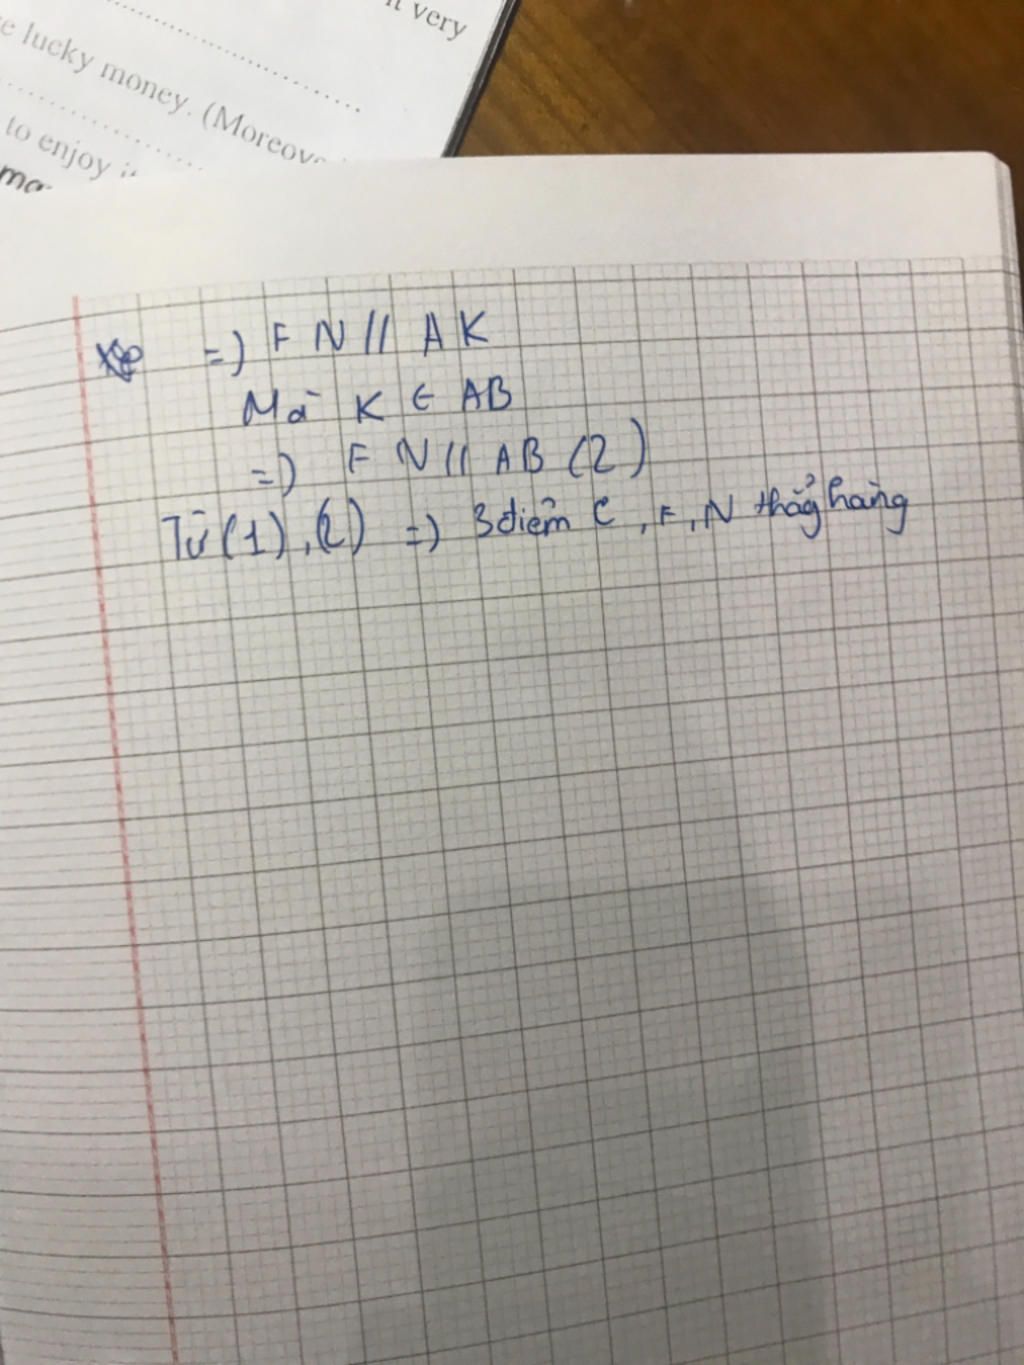 it very
e lucky money. (Moreove
to enjoy it
=) F N // A K
Mà K ∈ AB
=) F N // AB (2)
Từ (1), (2) =) 3 điểm C, F, N thẳg hàng